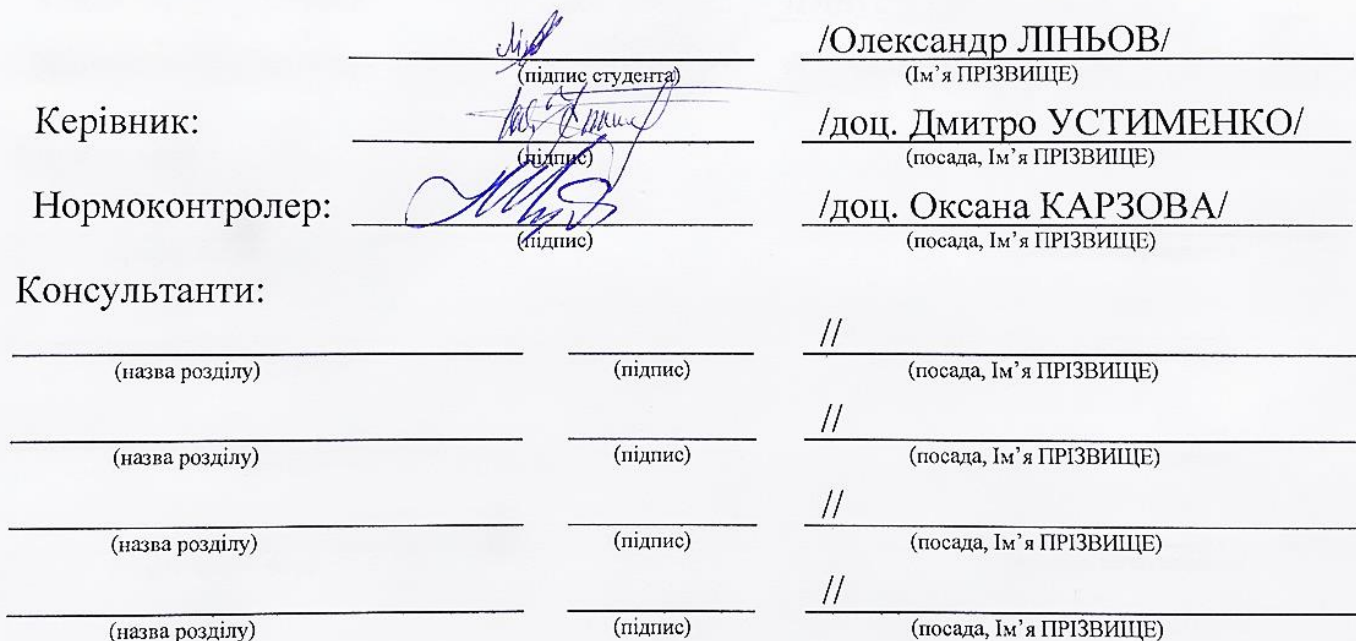 /Олександр ЛІНЬОВ/
(підпис студента) (Ім’я ПРІЗВИЩЕ)
Керівник: /доц. Дмитро УСТИМЕНКО/
(підпис) (посада, Ім’я ПРІЗВИЩЕ)
Нормоконтролер: /доц. Оксана КАРЗОВА/
(підпис) (посада, Ім’я ПРІЗВИЩЕ)
Консультанти:
//
(назва розділу) (підпис) (посада, Ім’я ПРІЗВИЩЕ)
//
(назва розділу) (підпис) (посада, Ім’я ПРІЗВИЩЕ)
//
(назва розділу) (підпис) (посада, Ім’я ПРІЗВИЩЕ)
//
(назва розділу) (підпис) (посада, Ім’я ПРІЗВИЩЕ)